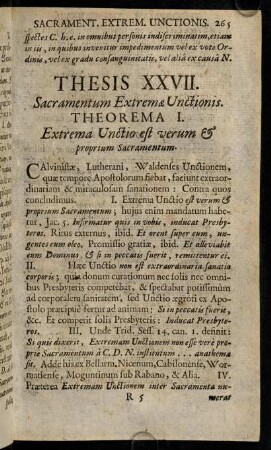 SACRAMENT. EXTREM. UNCTIONIS. 265
spectet C. h. e. in omnibus personis indiscriminatim, etiam
in iis, in quibus invenitur impedimentum vel ex voto Or-
dinis, vel ex gradu consanguinitatis, vel alia ex causâ N.
THESIS XXVII.
Sacramentum Extremæ Unctionis.
THEOREMA I.
Extrema Unctio est verum &
proprium Sacramentum.
CAlvinistæ, Lutherani, Waldenses Unctionem,
quæ tempore Apostolorum fiebat, faciunt extraor-
dinariam & miraculosam sanationem: Contra quos
concludimus. I. Extrema Unctio est verum &
proprium Sacramentum; hujus enim mandatum habe-
tur, Jac. 5. Infirmatur quis in vobis, inducat Presby-
teros. Ritus externus, ibid. Et orent super eum, un-
gentes eum oleo, Promissio gratiæ, ibid. Et alleviabit
eum Dominus, & si in peccatis fuerit, remittentur ei.
II. Hæc Unctio non est extraordinaria sanatio
corporis; quia donum curationum nec solis nec omni-
bus Presbyteris competebat, & spectabat potissimùm
ad corporalem sanitatem, sed Unctio ægroti ex Apo-
stolo præcipuè fertur ad animam; Si in peccatis fuerit,
&c. Et competit solis Presbyteris: Inducat Presbyte-
ros. III. Unde Trid. Sess. 14. can. 1. definit:
Si quis dixerit, Extremam Unctionem non esse verè pro-
priè Sacramentum à C. D. N. institutum ... anathema
sit. Adde his ex Bellarm. Nicenum, Cabilonense, Wor-
matiense, Moguntinum sub Rabano, & Alia. IV.
Præterea Extremam Unctionem inter Sacramenta nu-
R 5 merat